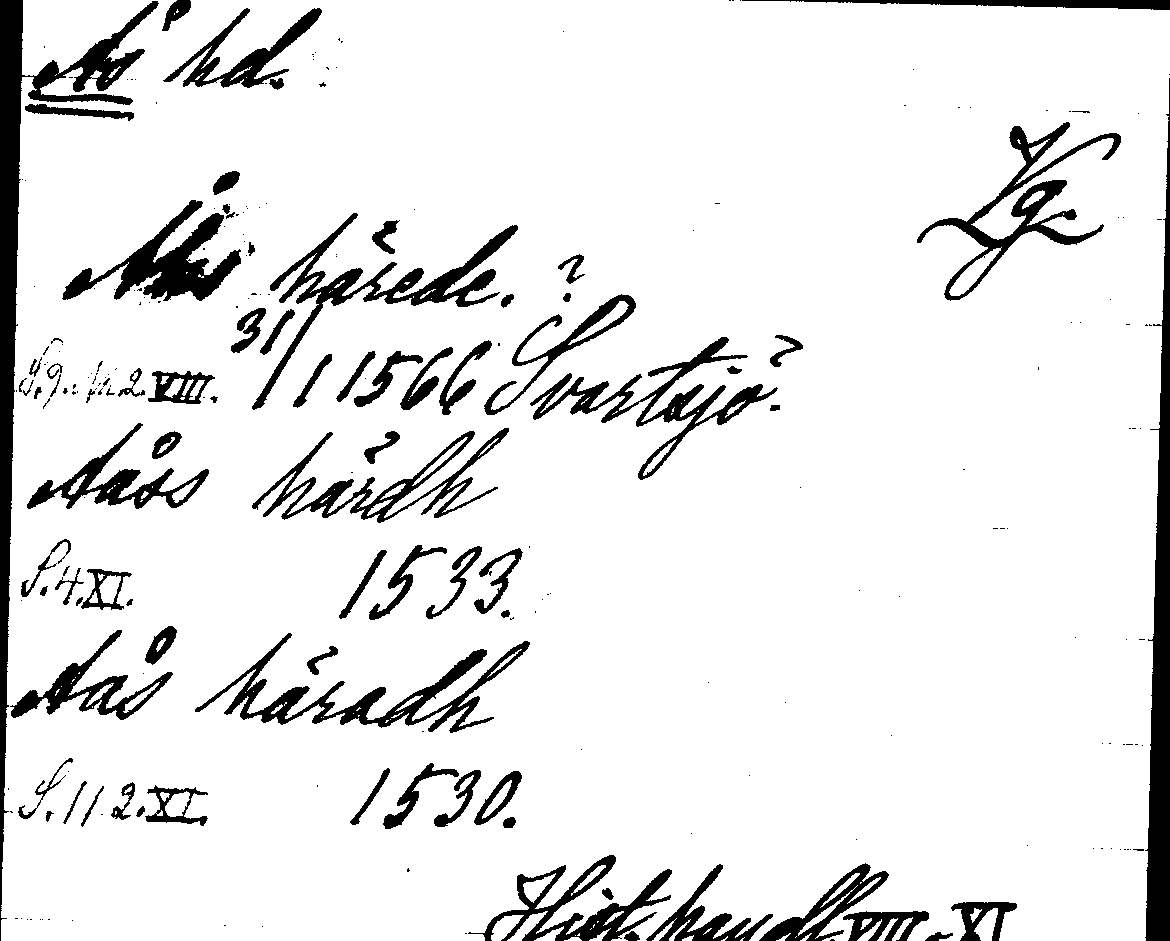 Ås hd.
Vg.
Åås härede. ?
S. 9. 2. VIII. 31/1 1566 Svartsjö.
Aåss härdh
S. 4. XI. 1533.
Aås häradh
S. 112. XI. 1530.
Hist. handl. VIII - XI